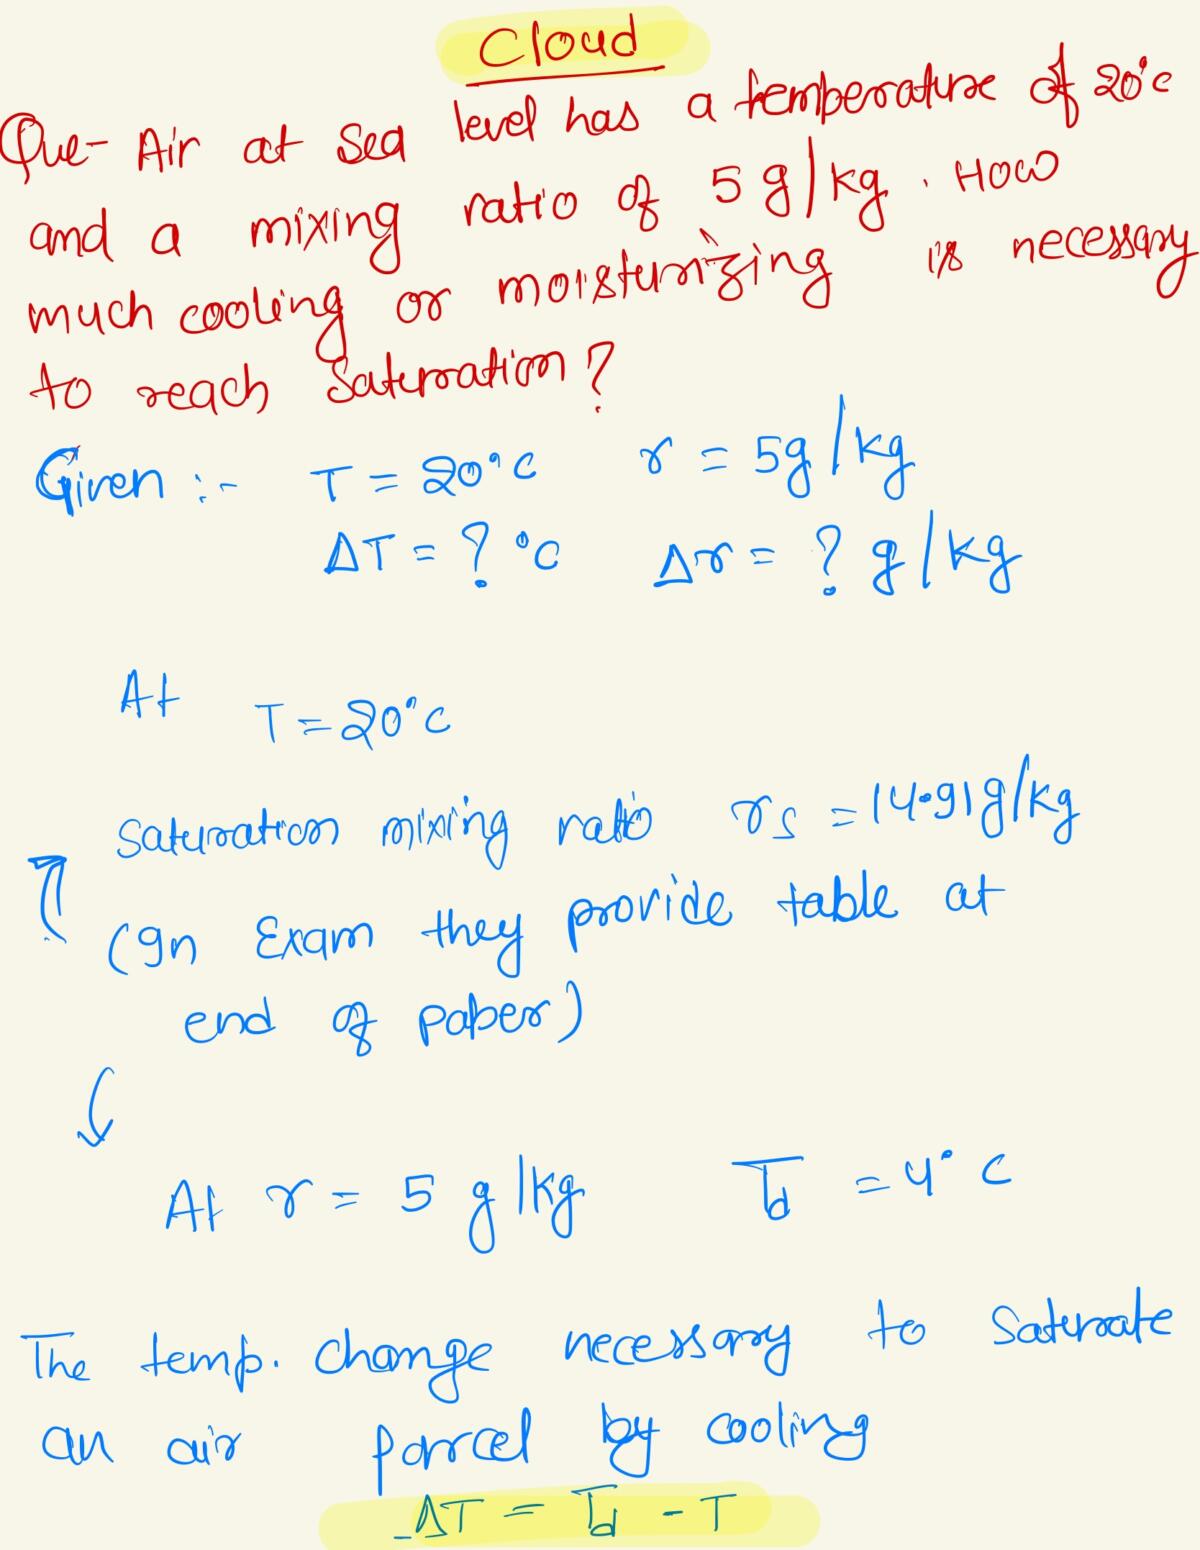 Cloud
Que- Air at Sea level has a temperature of 20°c
and a mixing ratio of 5 g/kg. How
much cooling or moisturizing is necessary
to reach Saturation?
Given :- T = 20°C r = 5g/kg
ΔT = ? °C Δr = ? g/kg
At T = 20°C
Saturation mixing ratio rs = 14.91g/kg
(In Exam they provide table at
end of paper)
At r = 5 g/kg Td = 4° C
The temp. change necessary to Saturate
an air parcel by cooling
ΔT = Td - T